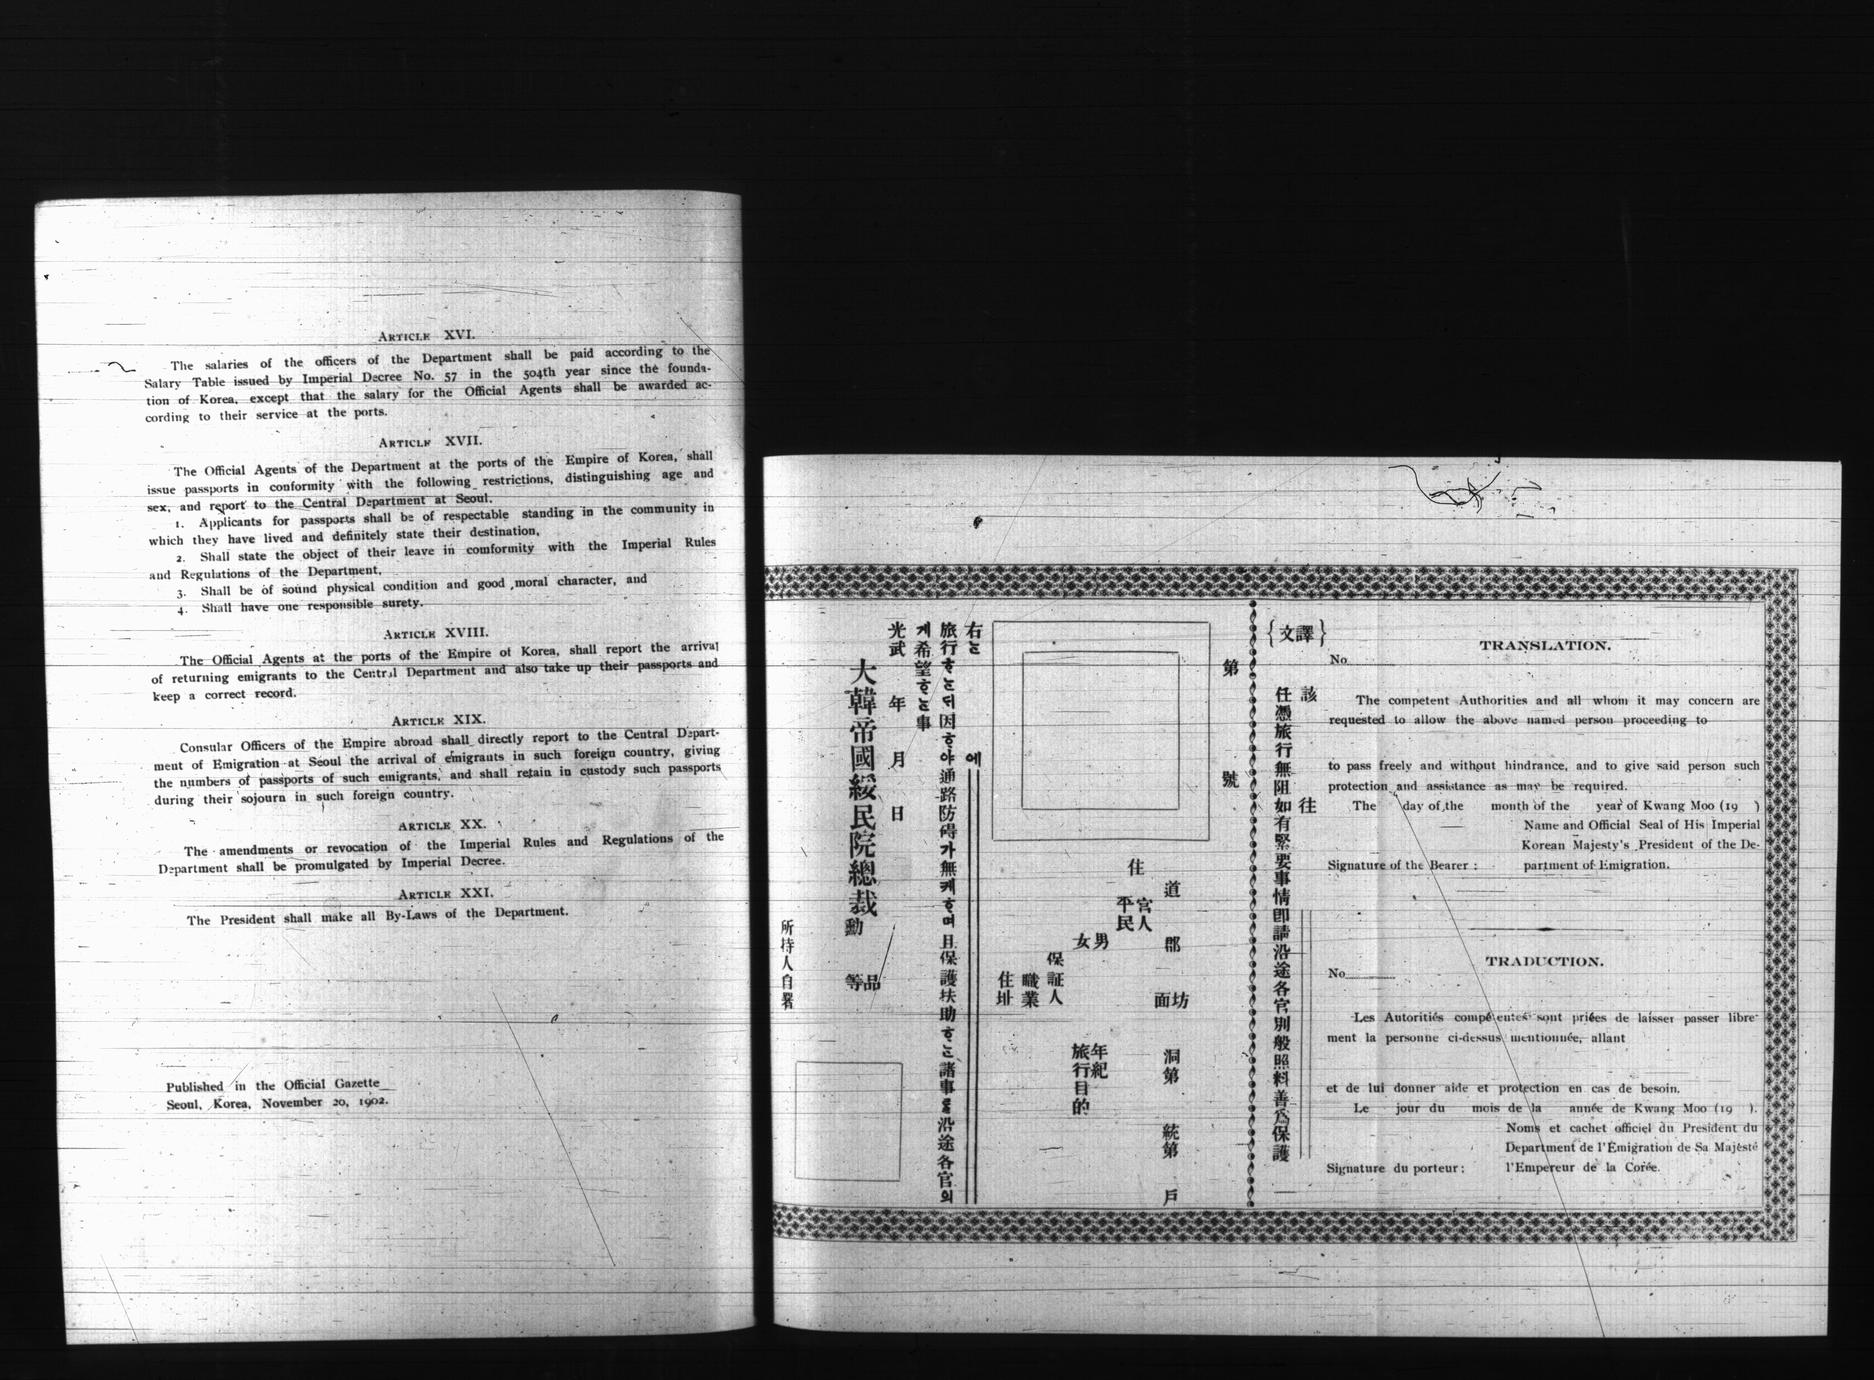 ARTICLE XVI.
The salaries of the officers of the Department shall be paid according to the
Salary Table issued by Imperial Decree No. 57 in the 504th year since the founda-
tion of Korea, except that the salary for the Official Agents shall be awarded ac-
cording to their service at the ports.
ARTICLE XVII.
The Official Agents of the Department at the ports of the Empire of Korea, shall
issue passports in conformity with the following restrictions, distinguishing age and
sex, and report to the Central Department at Seoul.
1. Applicants for passports shall be of respectable standing in the community in
which they have lived and definitely state their destination,
2. Shall state the object of their leave in comformity with the Imperial Rules
and Regulations of the Department,
3. Shall be of sound physical condition and good moral character, and
4. Shall have one responsible surety.
ARTICLE XVIII.
The Official Agents at the ports of the Empire of Korea, shall report the arrival
of returning emigrants to the Central Department and also take up their passports and
keep a correct record.
ARTICLE XIX.
Consular Officers of the Empire abroad shall directly report to the Central Depart-
ment of Emigration at Seoul the arrival of emigrants in such foreign country, giving
the numbers of passports of such emigrants, and shall retain in custody such passports
during their sojourn in such foreign country.
ARTICLE XX.
The amendments or revocation of the Imperial Rules and Regulations of the
Department shall be promulgated by Imperial Decree.
ARTICLE XXI.
The President shall make all By-Laws of the Department.
Published in the Official Gazette
Seoul, Korea, November 20, 1902.
{譯文}
該 往
任憑旅行無阻如有緊要事情卽請沿途各官別般照料善爲保護
第 號
住
道 郡 面坊 洞第 統第 戶
官人
平民
男女
年紀
旅行目的
保証人
職業
住址
右는 에
旅行하는데因하야通路防碍가無케하며且保護扶助하는諸事를沿途各官의
게希望하는事
光武 年 月 日
大韓帝國綏民院總裁勳 等品
所持人自署
TRANSLATION.
No
The competent Authorities and all whom it may concern are
requested to allow the above named person proceeding to
to pass freely and without hindrance, and to give said person such
protection and assistance as may be required.
The day of the month of the year of Kwang Moo (19 )
Name and Official Seal of His Imperial
Korean Majesty's President of the De-
Signature of the Bearer : partment of Emigration.
TRADUCTION.
No
Les Autoriтés compétentes sont priées de laisser passer libre-
ment la personne ci-dessus mentionnée, allant
et de lui donner aide et protection en cas de besoin.
Le jour du mois de la année de Kwang Moo (19 ).
Noms et cachet officiel du President du
Department de l'Émigration de Sa Majésté
Signature du porteur : l'Empereur de la Corée.